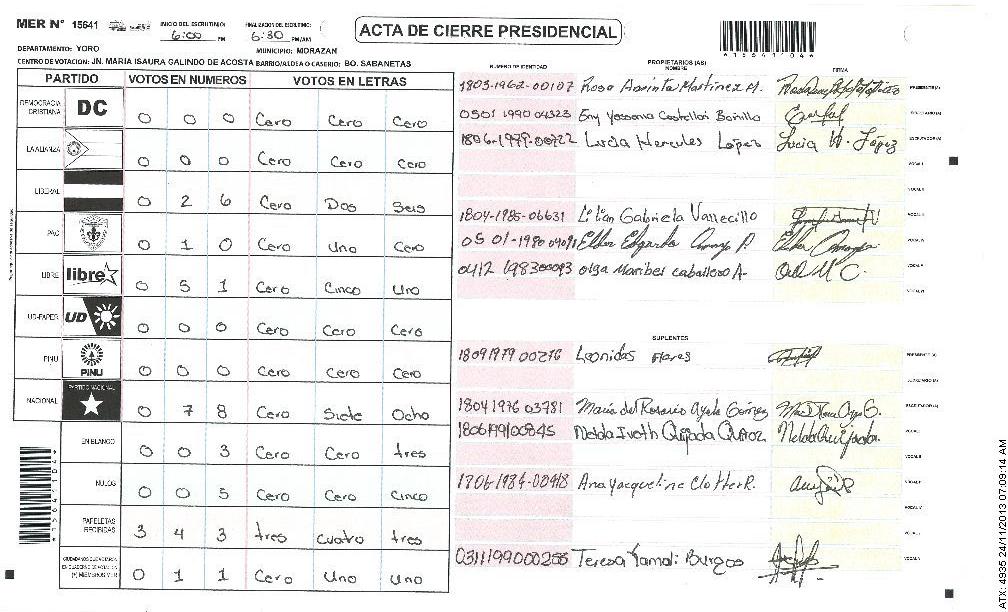 MER N° 15641
INICIO DEL ESCRUTINIO: 6:00 PM
FINALIZACION DEL ESCRUTINIO: 6:30 PM/AM
ACTA DE CIERRE PRESIDENCIAL
*15641104*
DEPARTAMENTO: YORO
MUNICIPIO: MORAZAN
CENTRO DE VOTACION: JN. MARIA ISAURA GALINDO DE ACOSTA BARRIO/ALDEA O CASERIO: BO. SABANETAS
PARTIDO VOTOS EN NUMEROS VOTOS EN LETRAS
DEMOCRACIA CRISTIANA DC 0 0 0 Cero Cero Cero
LA ALIANZA 0 0 0 Cero Cero Cero
LIBERAL 0 2 6 Cero Dos Seis
PAC 0 1 0 Cero Uno Cero
LIBRE libre 0 5 1 Cero Cinco Uno
UD-FAPER UD 0 0 0 Cero Cero Cero
PINU PINU 0 0 0 Cero Cero Cero
NACIONAL PARTIDO NACIONAL 0 7 8 Cero Siete Ocho
EN BLANCO 0 0 3 Cero Cero tres
NULOS 0 0 5 Cero Cero Cinco
PAPELETAS RECIBIDAS 3 4 3 tres cuatro tres
(+) MIEMBROS MER 0 1 1 Cero Uno Uno
NUMERO DE IDENTIDAD PROPIETARIOS (AS) NOMBRE FIRMA
1803-1962-00107 Rosa Aminta Martinez M. PRESIDENTE (A)
0501 1990 04323 Eny Yossania Castellon Bonilla SECRETARIO (A)
1806-1979-00722 Lucia Hercules López Lucia H. López ESCRUTADOR (A)
VOCAL I
VOCAL II
1804-1985-06631 Lilian Gabriela Vallecillo VOCAL III
0501-1980 04091 Elder Edgardo VOCAL IV
0412 198300093 olga Maribel caballero A. VOCAL V
VOCAL VI
SUPLENTES
1809 1979 00276 Leonidas Flores PRESIDENTE (A)
SECRETARIO (A)
1804 1976 03781 Maria del Rosario Ayala Gómez ESCRUTADOR (A)
1806199100845 Nelda Iveth Quijada Quiroz Nelda Quijada. VOCAL I
VOCAL II
1806 1984-00418 Ana Yacqueline Clother R. VOCAL III
VOCAL IV
VOCAL V
0311199000256 Teresa Yamali Burgos
ATX: 4935 24/11/2013 07:09:14 AM